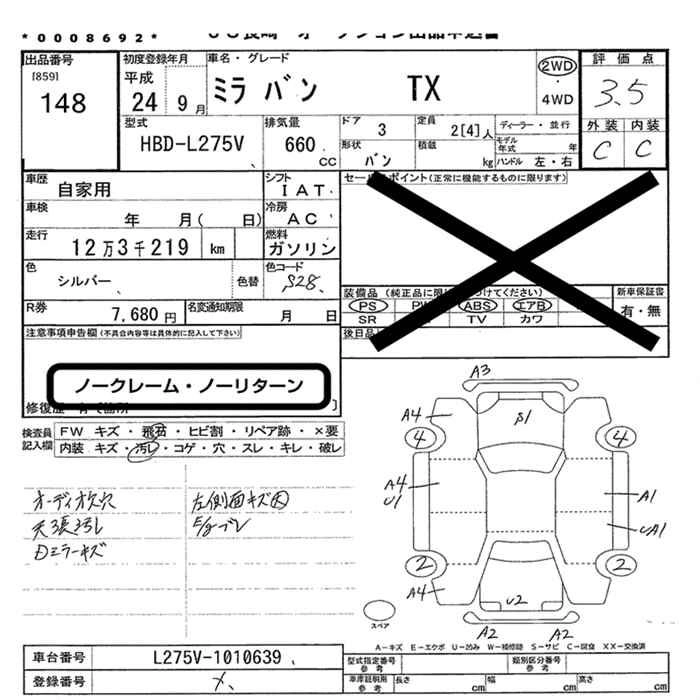 *0008692*
出品番号
[859]
148
初度登録年月
平成
24 9 月
車名・グレード
ミラ バン TX
2WD
・
4WD
評価点
3.5
外装 内装
C C
型式
HBD-L275V
排気量
660
cc
ドア
3
定員
2[4]人
ディーラー・並行
形状
バン
積載
kg
モデル
年式 年
ハンドル 左・右
車歴
自家用
シフト
IAT
車検
年 月( 日)
冷房
AC
走行
12万3千219 km
燃料
ガソリン
色
シルバー
色替
色コード
S28
R券
7,680 円
名変通知期限
月 日
セールスポイント(正常に機能するものに限ります)
装備品
PS ABS エアB
SR TV カワ
新車保証書
有・無
後日品
注意事項申告欄(不具合内容等は具体的に記入して下さい)
ノークレーム・ノーリターン
検査員
記入欄
FW キズ・飛石・ヒビ割・リペア跡・×要
内装 キズ・汚レ・コゲ・穴・スレ・キレ・破レ
オーディオ欠穴
天張汚し
Dミラーキズ
左側面キズ凹
E/gブレ
A3
A4
β1
4
4
A4
U1
A1
UA1
2
2
A4
U2
A2
A2
スペア
A-キズ E-エクボ U-凹み W-補修跡 S-サビ C-腐食 XX-交換済
車台番号
L275V-1010639
登録番号
メ
型式指定番号
参考
類別区分番号
参考
車庫証明用
参考
長さ cm
幅 cm
高さ cm